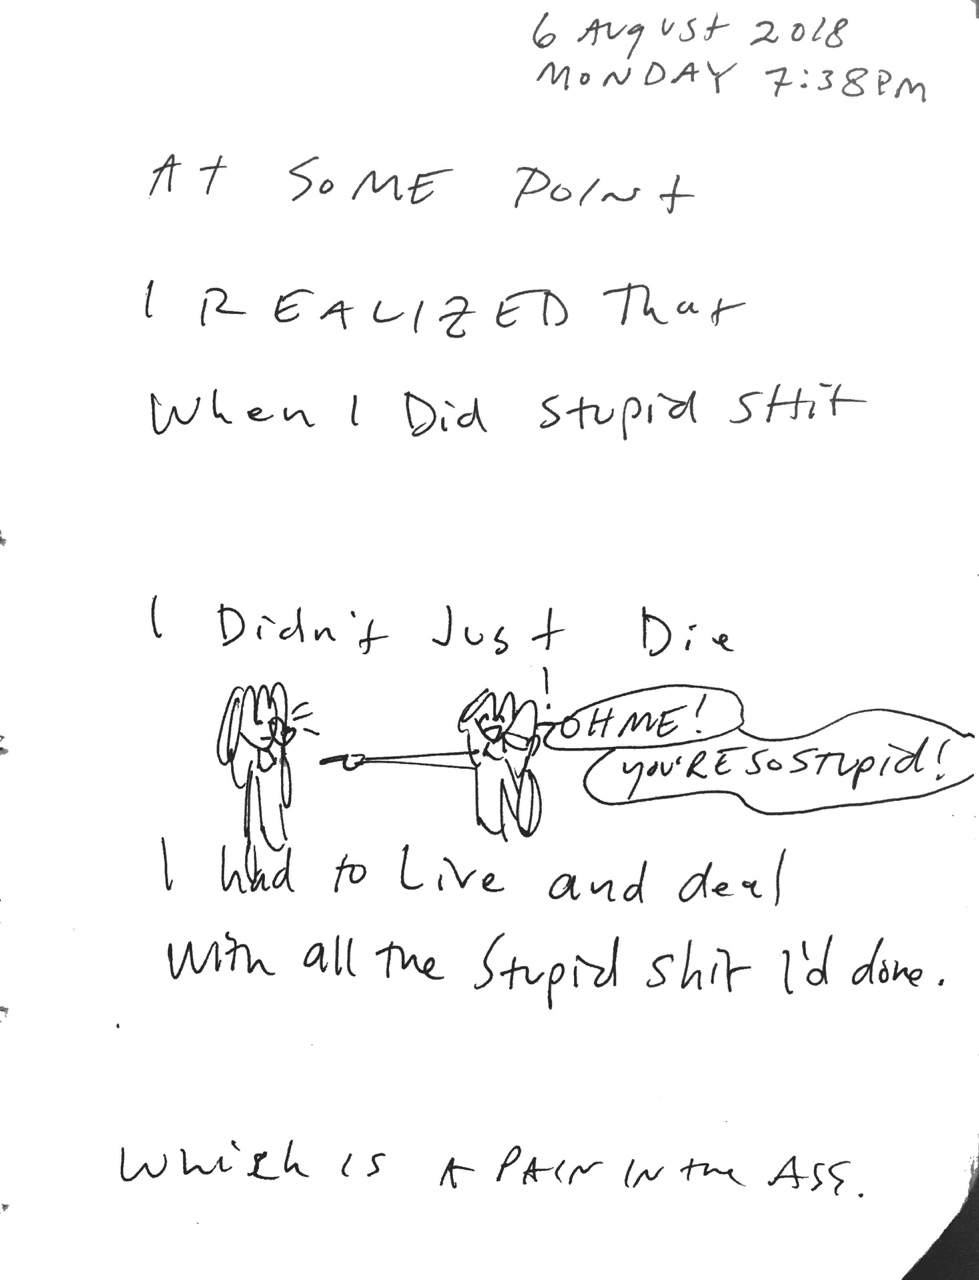 6 August 2018
MONDAY 7:38PM
At SOME POINt
I REALIZED That
When I Did stupid sHit
I Didn't Just Die
!
OH ME!
YOU'RE SO STUPID!
I had to Live and deal
with all the stupid shit I'd done.
Which is A PAIN IN the ASS.